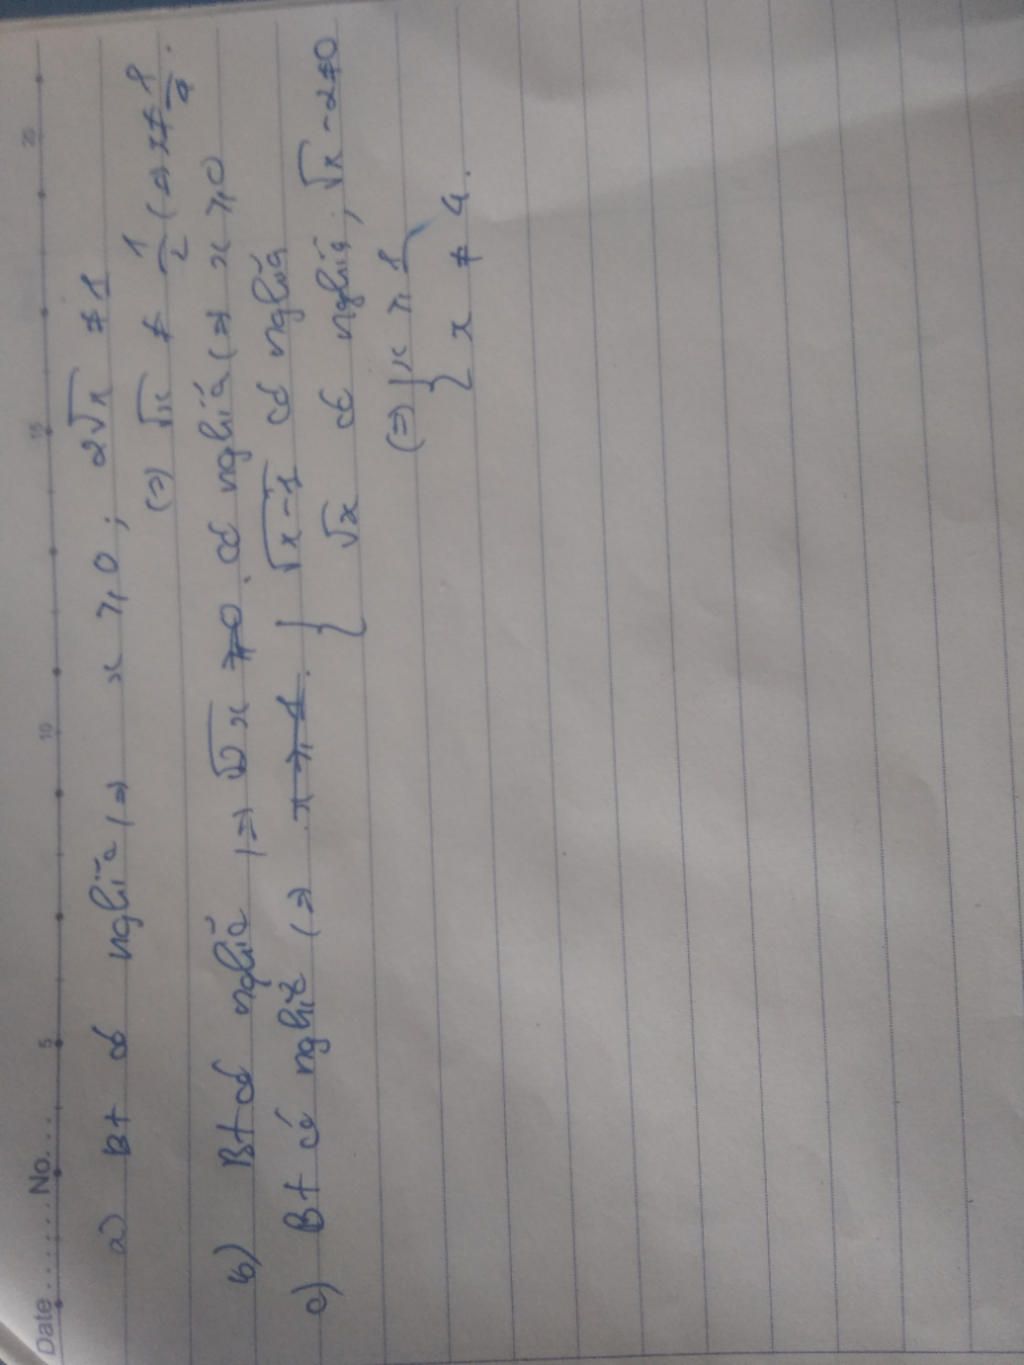 Date ...... No. ...
5 10 15 20
a) Bt có nghĩa (=) x ≥ 0 ; 2√x ≠ 1
(=) √x ≠ 1/2 (=) x ≠ 1/4.
b) Bt có nghĩa (=) √x có nghĩa (=) x ≥ 0
c) Bt có nghĩa (=) { √x-1 có nghĩa
√x có nghĩa ; √x - 2 ≠ 0
(=) { x ≥ 1
x ≠ 4.